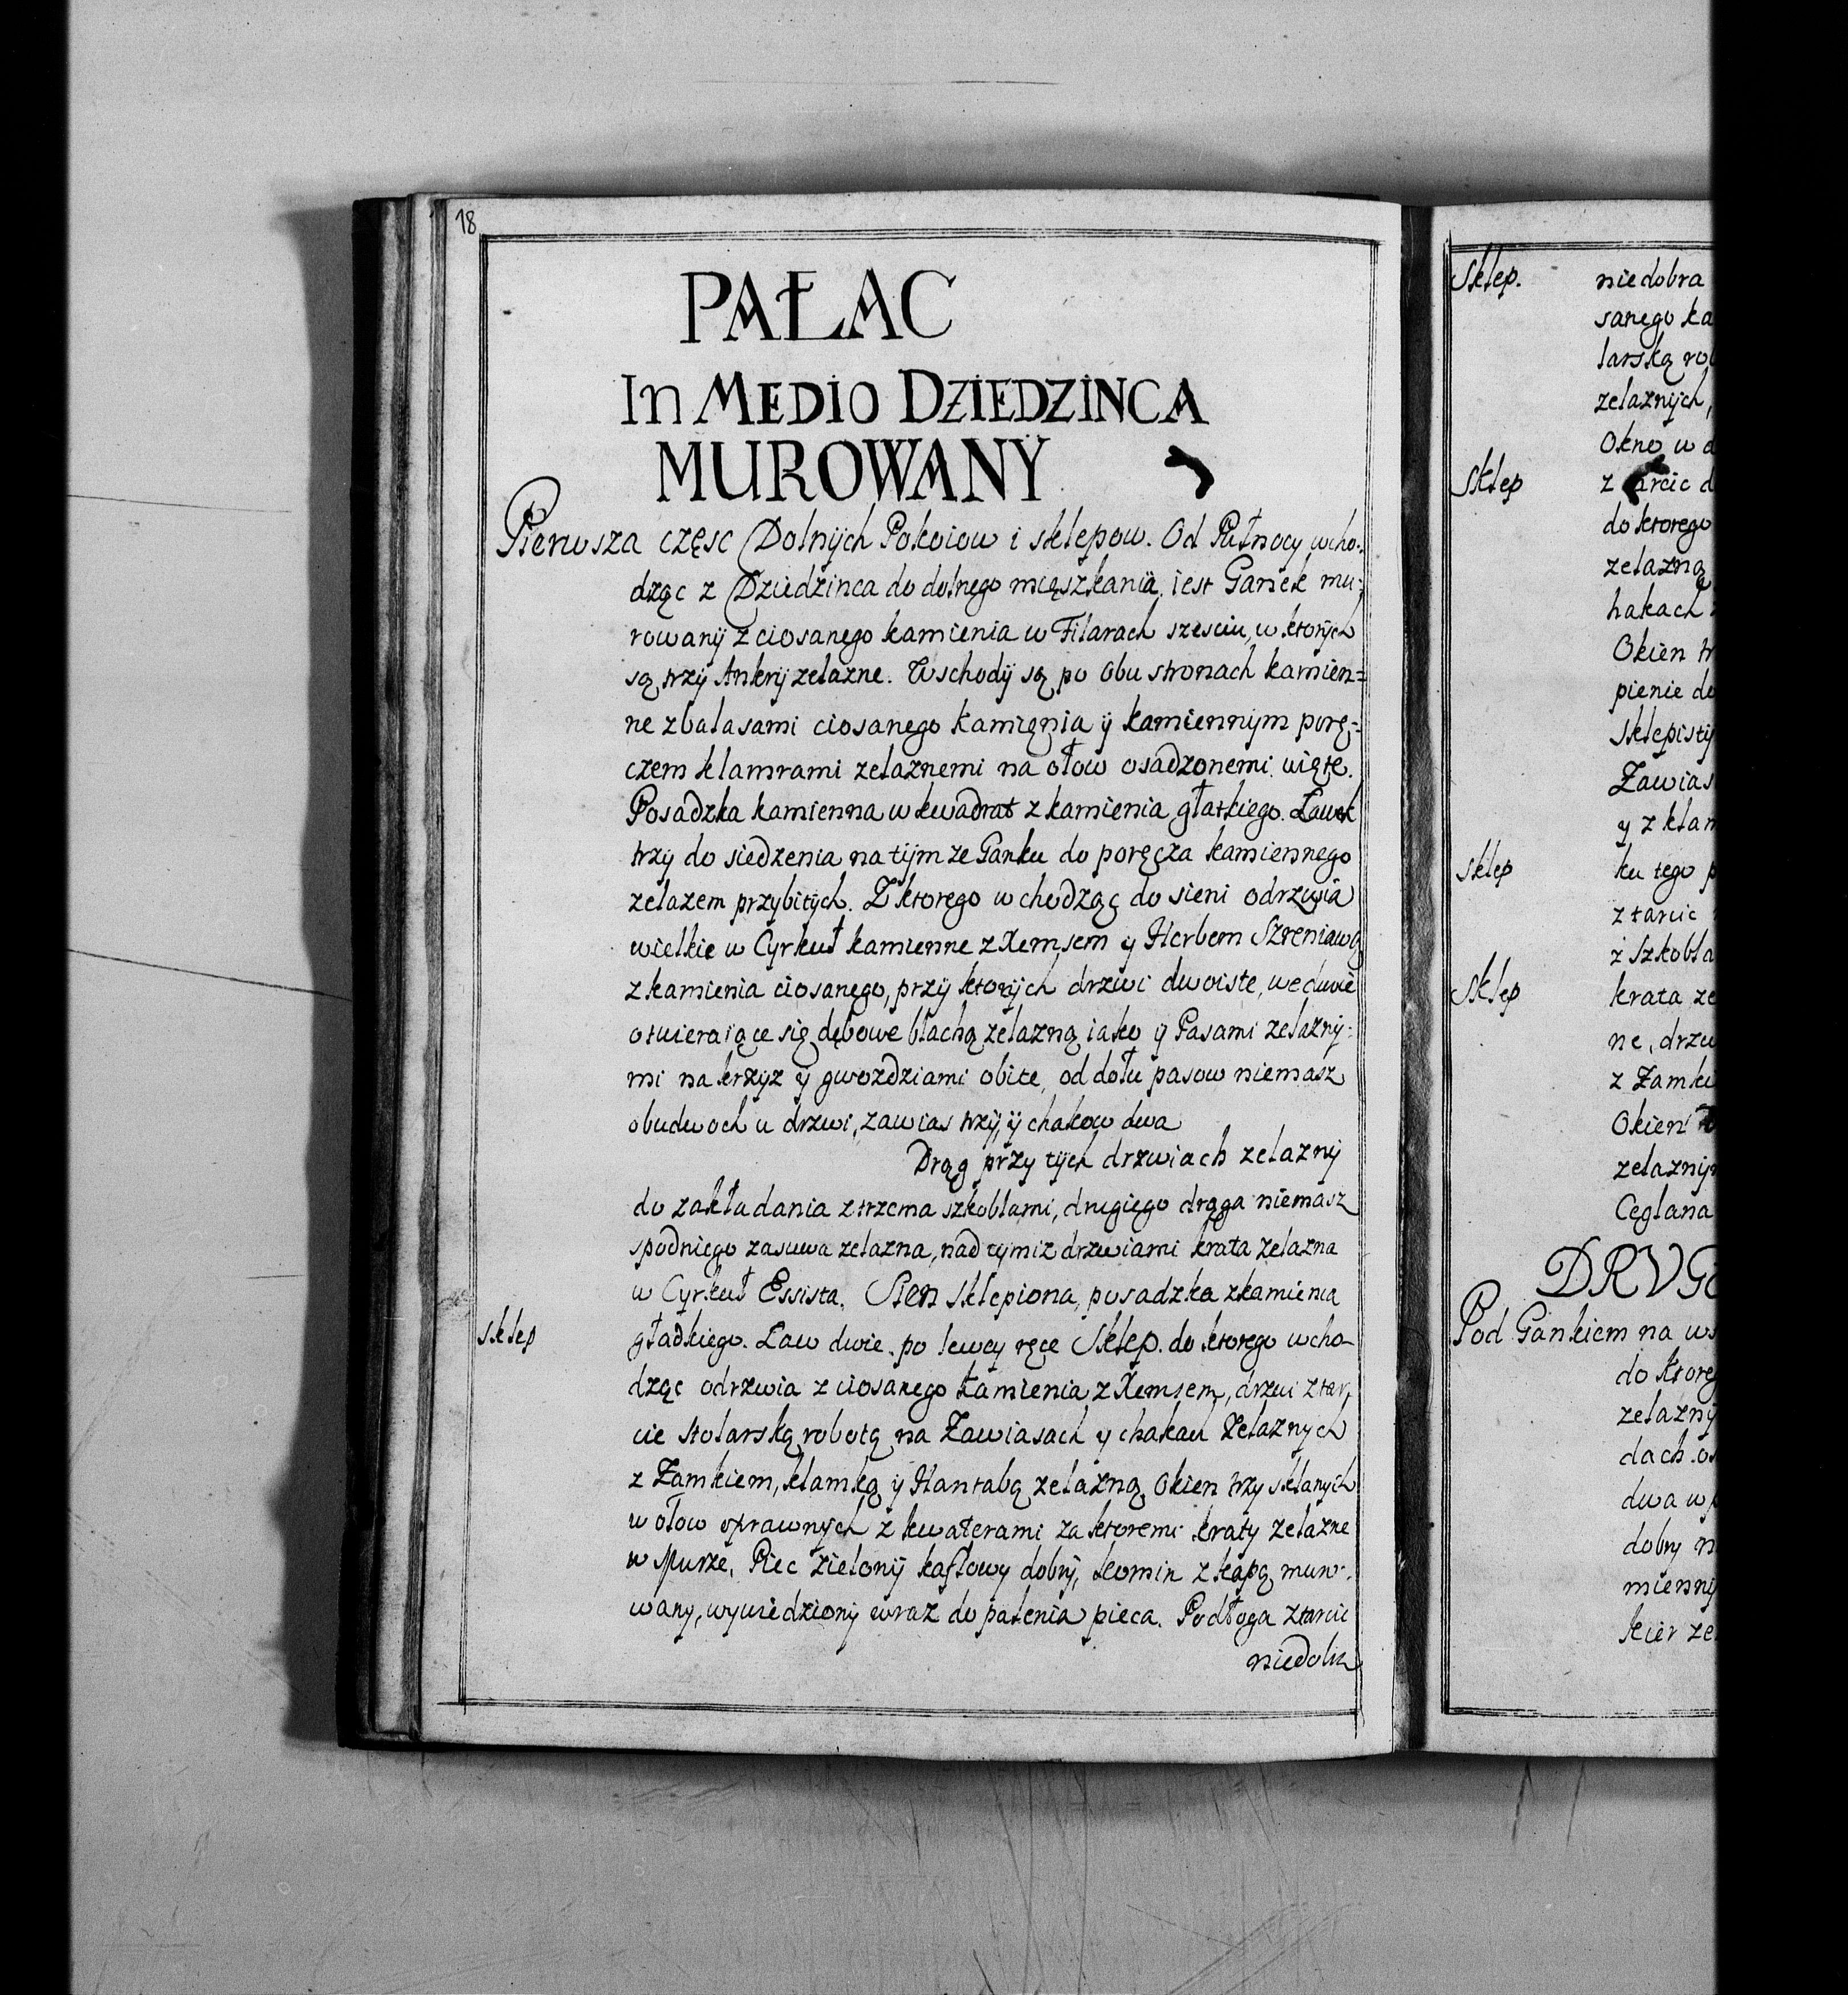 18
PAŁAC
In MEDIO DZIEDZINCA
MUROWANY
Pierwsza częsc Dolnÿch Pokoiow i sklepow. Od Pułnocy wcho-
dząc z Dziedzinca do dolnego mięszkania. iest Ganek mu-
rowanÿ z ciosanego kamienia w Filarach szesciu, w ktorÿch
są trzÿ Ankrÿ zelazne. Wschodÿ są po obu stronach kamien=
ne z balasami ciosanego kamięnia ÿ kamiennÿm porę-
czem klamrami zelaznemi na ołow osadzonemi więte.
Posadzka kamienna w kwadrat z kamienia głatkiego. Ławek
trzÿ do siedzenia na tÿm ze Ganku do poręcza kamiennego
zelazem przybitÿch. Z ktorego wchodząc do sieni odrzwia
wielkie w Cyrkuł kamienne z Xemsem y Herbem Szreniawą
z kamienia ciosanego, przÿ ktorÿch drzwi dwoiste, we dwie
otwieraiące się dębowe blachą zelazną iako y Pasami zelaznÿ-
mi na krzyz ÿ gwozdziami obite, od dołu pasow niemasz
obudwoch u drzwi, zawias trzÿ, ÿ chakow dwa
Drąg przy tÿch drzwiach zelaznÿ
do zakładania z trzema szkoblami, drugięgo drąga niemasz
spodniego zasuwa zelazna, nad tymiz drzwiami krata zelazna
w Cyrkuł Essista. Sien sklepiona, posadzka z kamienia
sklep gładkiego. Ław dwie. po lewey ręce Sklep. do ktorego wcho-
dząc odrzwia z ciosanego kamienia z Xemsem, drzwi z tar,
cic stolarską robotą na Zawiasach y chakach Zelaznych
z Zamkiem, klamką y Hantabą zelazną. Okien trzy sklanych
w ołow oprawnÿch z kwaterami za ktoremi kraty zelazne
w Murze, Piec zielonÿ kaflowy dobrÿ, komin z kapą muro-
wany, wywiedzionÿ wraz do palenia pieca. Podłoga z tarcic
niedobra
Sklep. niedobra
sanego ka
larską rob
zelaznÿch,
Okno w
Sklep z tarcic d
do ktorego
zelazną
hakach
Okien
pienie
sklepistÿ
Zawias
y z klam
sklep ku tego p
z tarcic
z szkobla
Sklep krata ze
ne, drzw
z Zamki
Okien
zelaznÿ
Cęglana
DRVG
Pod Gankiem na ws
do ktoreg
zelaznÿ
dach
dwa w
dobry n
miennÿ